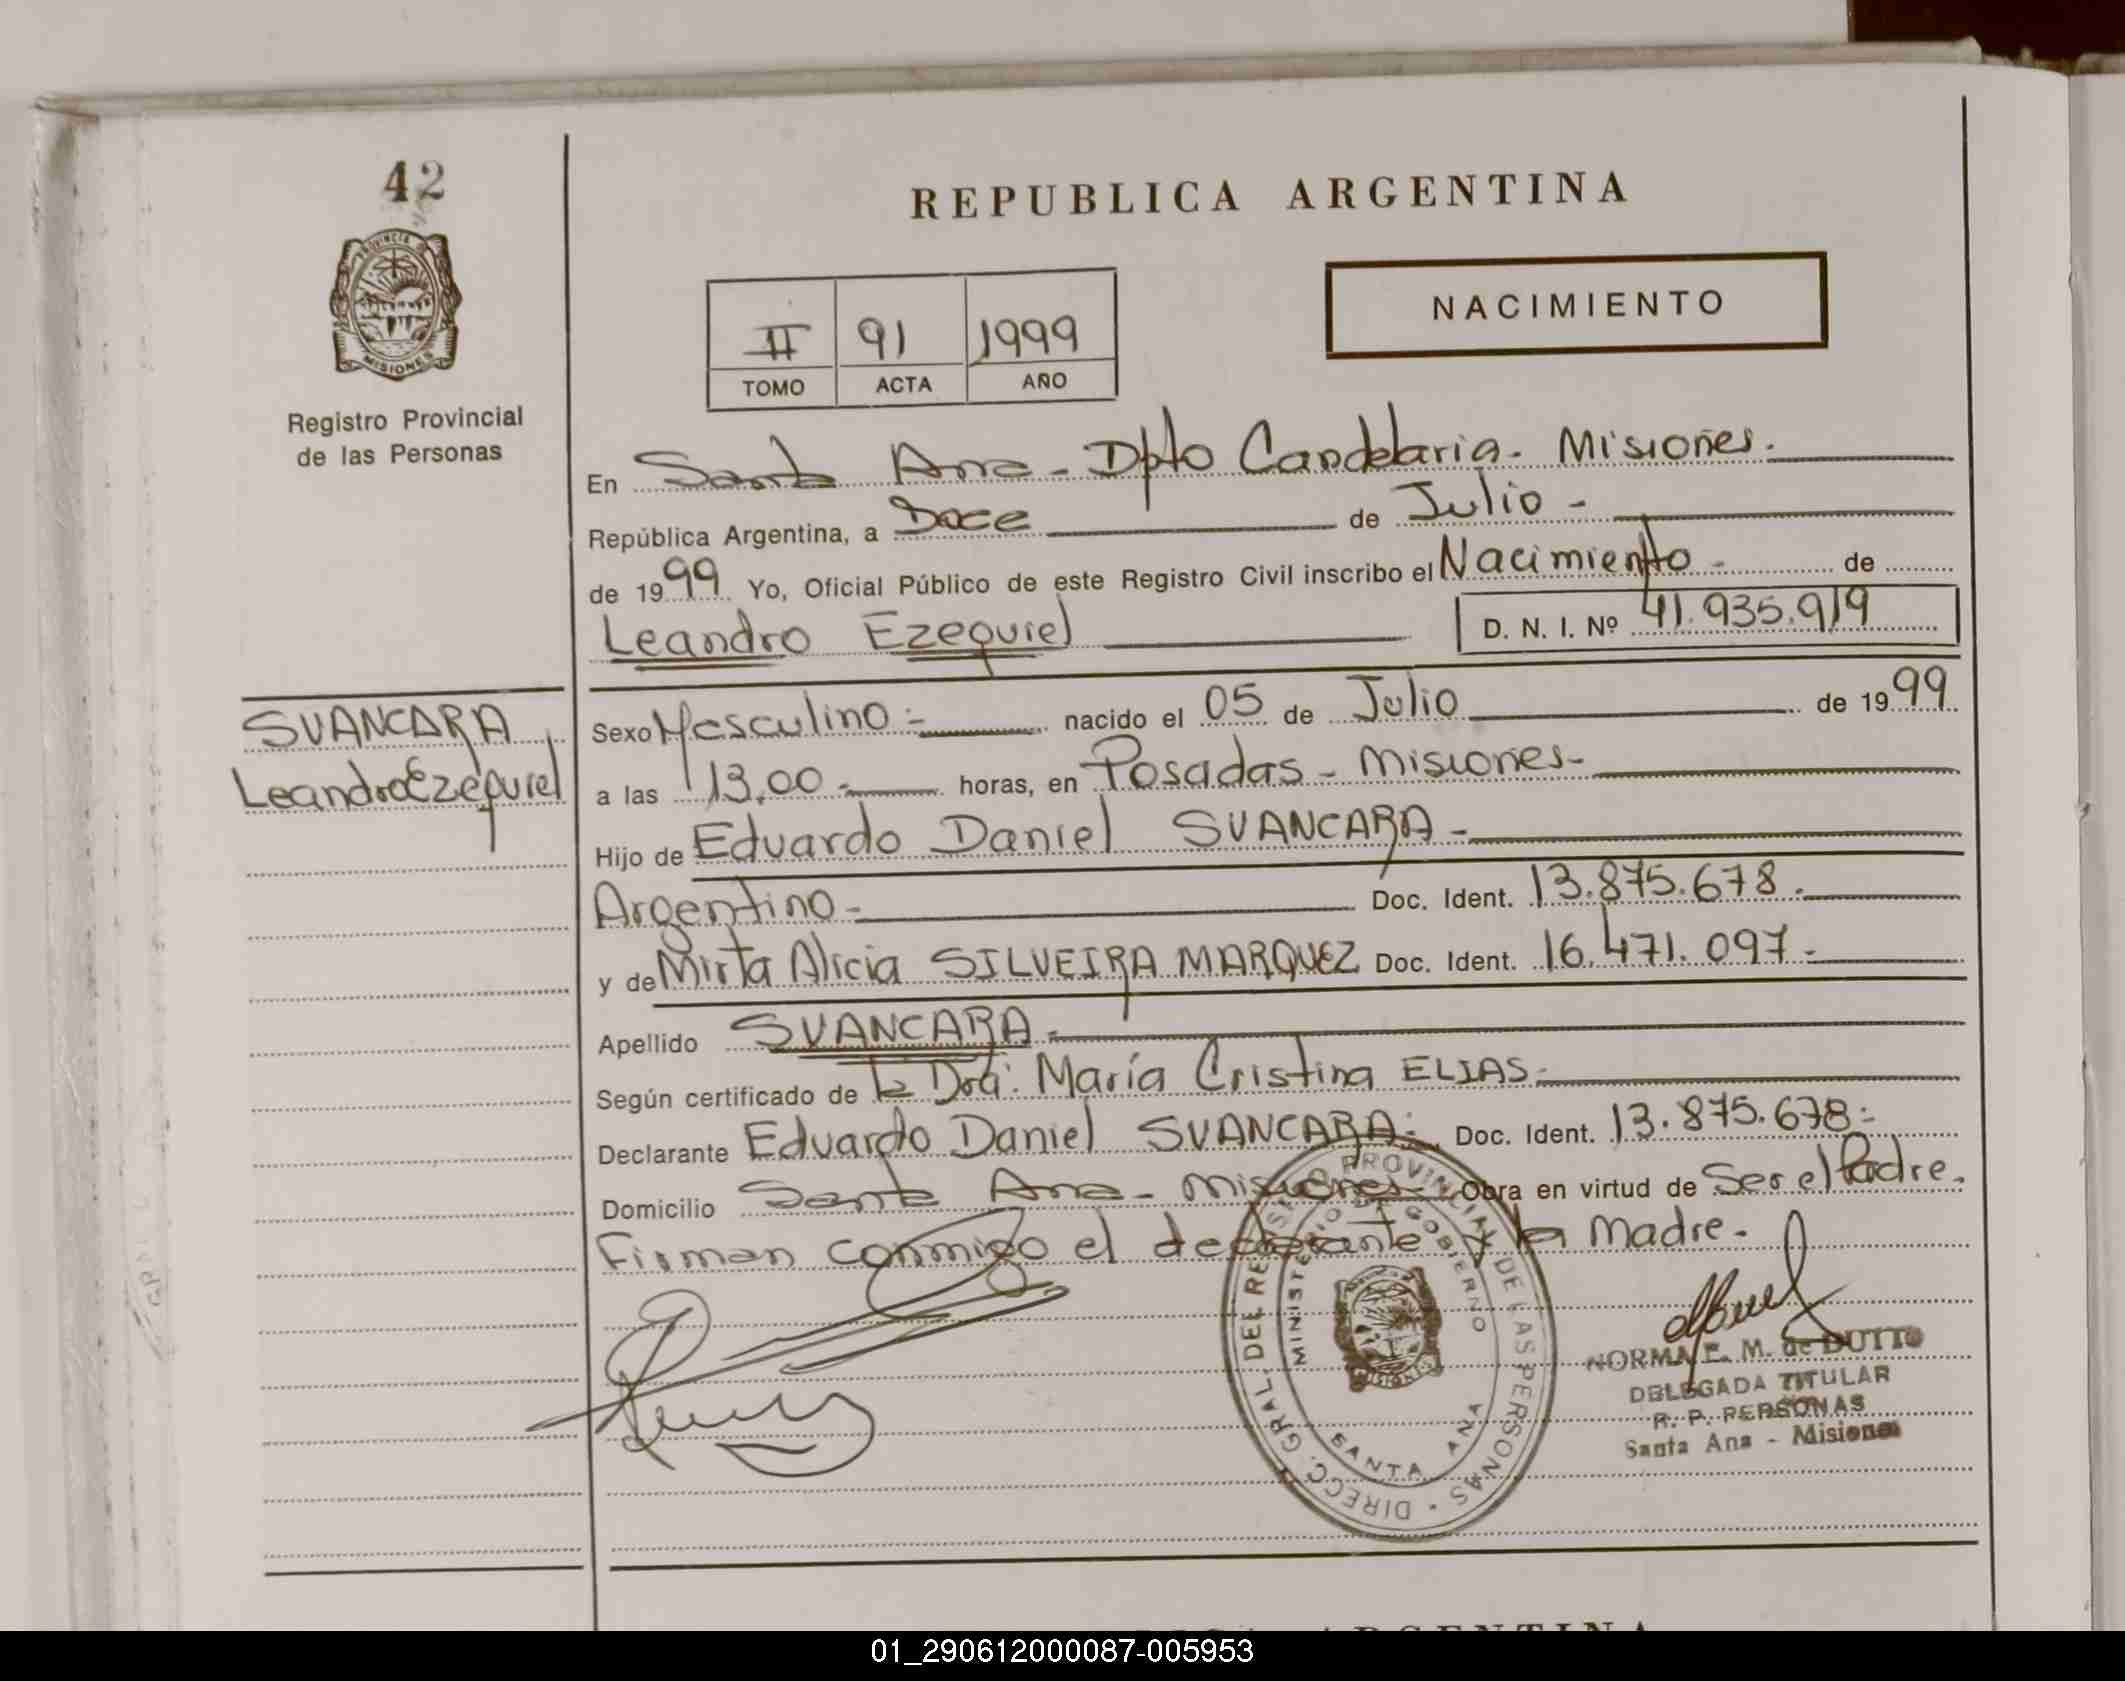 42
PROVINCIA DE
MISIONES
Registro Provincial
de las Personas
REPUBLICA ARGENTINA
NACIMIENTO
II 91 1999
TOMO ACTA AÑO
En Santa Ana - Dpto Candelaria - Misiones.
República Argentina, a Doce de Julio -
de 1999 Yo, Oficial Público de este Registro Civil inscribo el Nacimiento - de
Leandro Ezequiel D. N. I. Nº 41.935.919
SVANCARA
Leandro Ezequiel
Sexo Masculino nacido el 05 de Julio de 1999
a las 13,00 horas, en Posadas - Misiones -
Hijo de Eduardo Daniel SVANCARA -
Argentino - Doc. Ident. 13.875.678.
y de Mirta Alicia SILVEIRA MARQUEZ Doc. Ident. 16.471.097.-
Apellido SVANCARA -
Según certificado de la Dra. María Cristina ELIAS.-
Declarante Eduardo Daniel SVANCARA Doc. Ident. 13.875.678.-
Domicilio Santa Ana - Misiones - Obra en virtud de Ser el Padre.
Firman conmigo el declarante y la Madre.-
DIRECC. GRAL. DEL REGISTRO PROVINCIAL DE LAS PERSONAS
MINISTERIO DE GOBIERNO
SANTA ANA
MISIONES
NORMA E. M. de DUTTO
DELEGADA TITULAR
R. P. PERSONAS
Santa Ana - Misiones
ARGENTINA
01_290612000087-005953